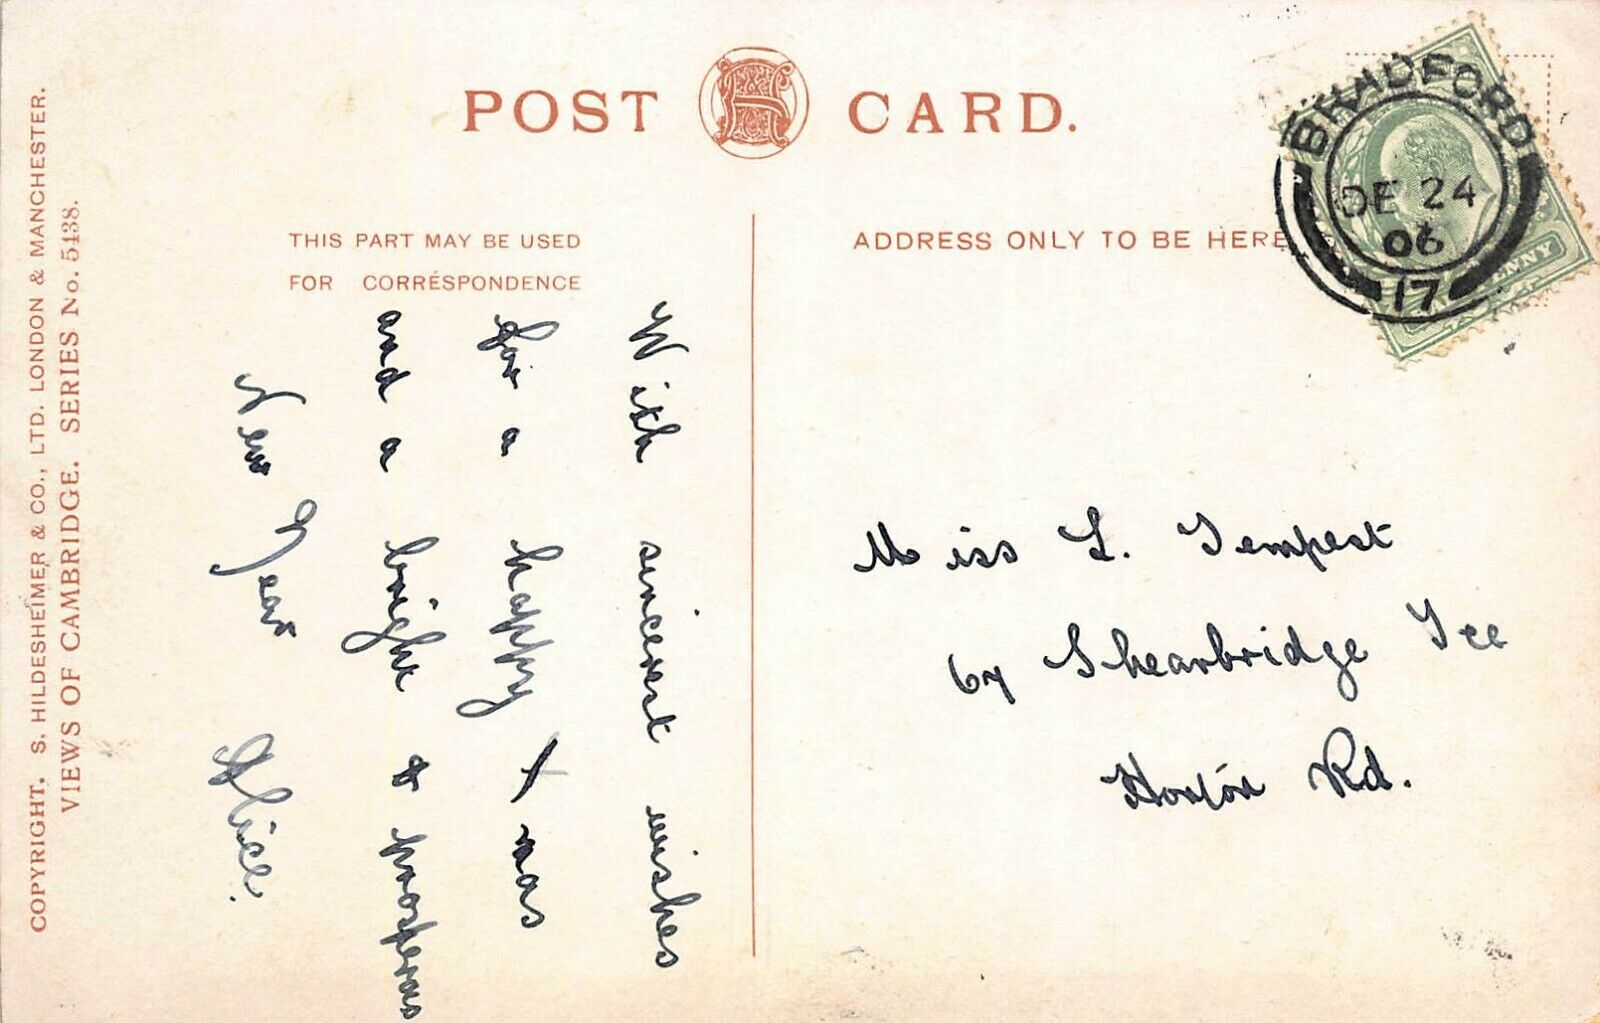 POST CARD.
THIS PART MAY BE USED
FOR CORRESPONDENCE
ADDRESS ONLY TO BE HERE
BRADFORD
DE 24
06
17
PENNY
With sincerest wishes
for a happy Xmas
and a bright & prosperous
New Year Alice.
Miss L. Tempest
67 Shearbridge Tce
Horton Rd.
COPYRIGHT. S. HILDESHEIMER & CO., LTD. LONDON & MANCHESTER.
VIEWS OF CAMBRIDGE. SERIES No. 5438.